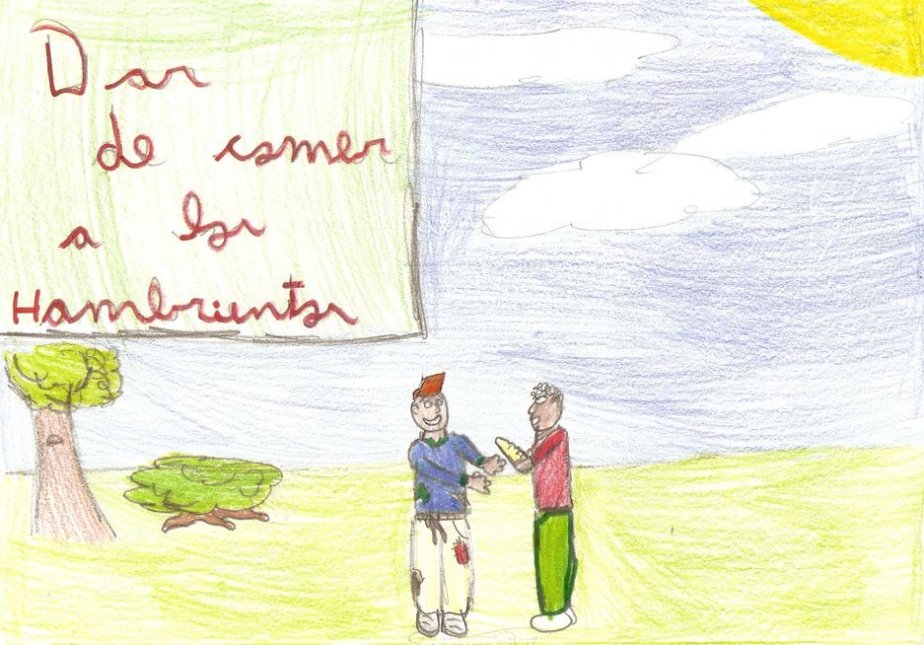 Dar
de comer
a los
Hambrientos